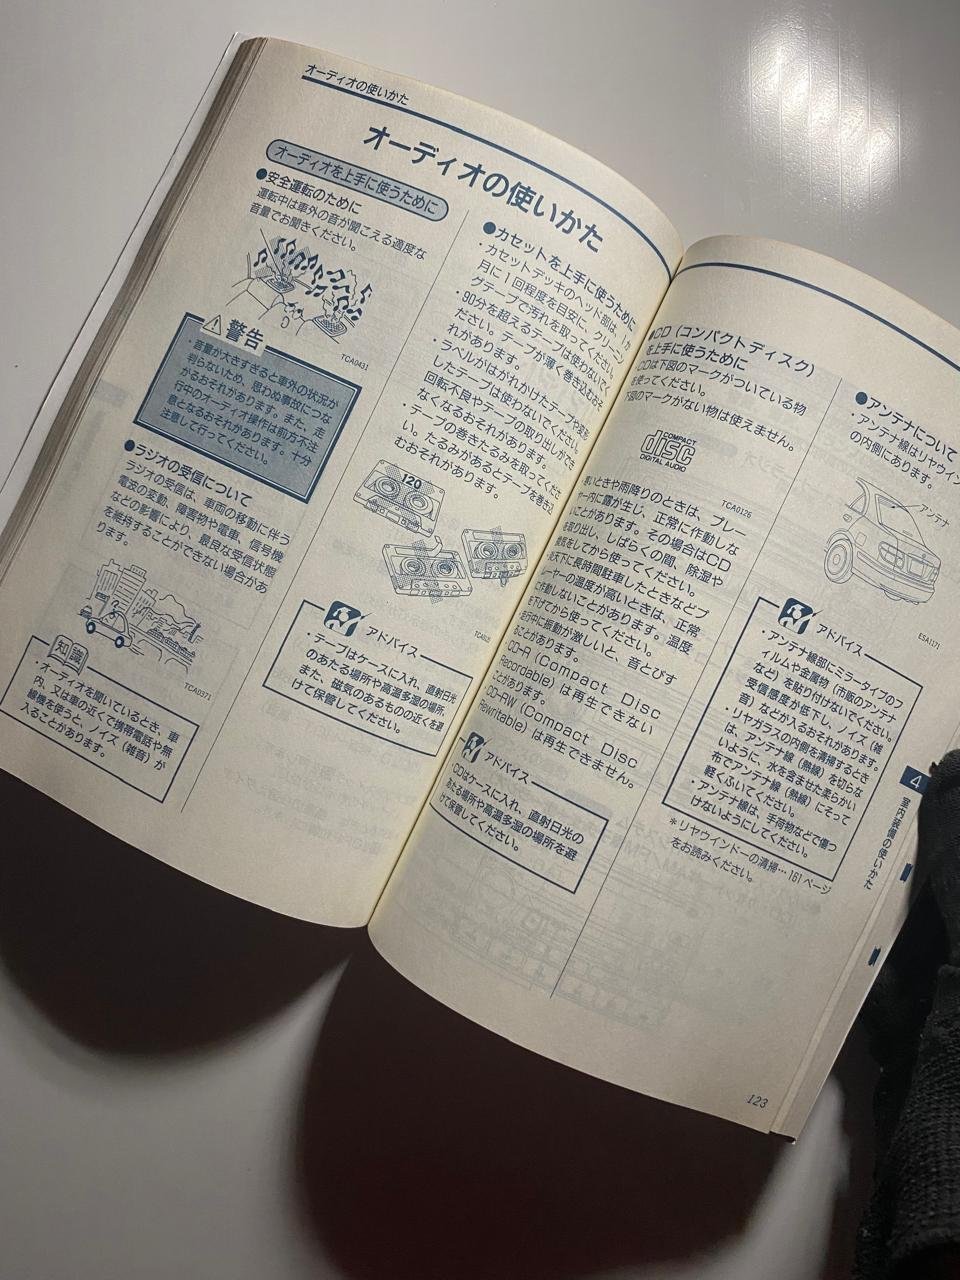 オーディオの使いかた
オーディオの使いかた
オーディオを上手に使うために
●安全運転のために
運転中は車外の音が聞こえる適度な
音量でお聞きください。
TCA0431
警告
・音量が大きすぎると車外の状況が
判らないため、思わぬ事故につな
がるおそれがあります。また、走
行中のオーディオ操作は前方不注
意となるおそれがあります。十分
注意して行ってください。
●ラジオの受信について
ラジオの受信は、車両の移動に伴う
電波の変動、障害物や電車、信号機
などの影響により、最良な受信状態
を維持することができない場合があ
ります。
TCA0371
知識
・オーディオを聞いているとき、車
内、又は車の近くで携帯電話や無
線機を使うと、ノイズ（雑音）が
入ることがあります。
●カセットを上手に使うために
・カセットデッキのヘッド部は、1か
月に1回程度を目安に、クリーニン
グテープで汚れを取ってください。
・90分を超えるテープは使わないでく
ださい。テープが薄く巻き込むおそ
れがあります。
・ラベルがはがれかけたテープや変形
したテープは使わないでください。
回転不良やテープの取り出しができ
なくなるおそれがあります。
・テープの巻きたるみを取ってくださ
い。たるみがあるとテープを巻き込
むおそれがあります。
120
アドバイス
・テープはケースに入れ、直射日光
のあたる場所や高温多湿の場所、
また、磁気のあるものの近くを避
けて保管してください。
●CD（コンパクトディスク）
を上手に使うために
CDは下図のマークがついている物
を使ってください。
下図のマークがない物は使えません。
COMPACT
disc
DIGITAL AUDIO
TCA0126
いときや雨降りのときは、プレー
ヤー内に露が生じ、正常に作動しな
いことがあります。その場合はCD
を取り出し、しばらくの間、除湿や
換気をしてから使ってください。
炎天下に長時間駐車したときなどプ
レーヤーの温度が高いときは、正常
に作動しないことがあります。温度
を下げてから使ってください。
走行中に振動が激しいと、音とびす
ることがあります。
CD-R（Compact Disc
Recordable）は再生できない
ことがあります。
CD-RW（Compact Disc
Rewritable）は再生できません。
アドバイス
・CDはケースに入れ、直射日光の
あたる場所や高温多湿の場所を避
けて保管してください。
●アンテナについて
・アンテナ線はリヤウイン
の内側にあります。
アンテナ
ESA1171
アドバイス
・アンテナ線部にミラータイプのフ
ィルムや金属物（市販のアンテナ
など）を貼り付けないでください。
受信感度が低下し、ノイズ（雑
音）などが入るおそれがあります。
・リヤガラスの内側を清掃するとき
は、アンテナ線（熱線）を切らな
いように、水を含ませた柔らかい
布でアンテナ線（熱線）にそって
軽くふいてください。
・アンテナ線は、手荷物などで傷つ
けないようにしてください。
＊リヤウインドーの清掃…161ページ
をお読みください。
4
室内装備の使いかた
123